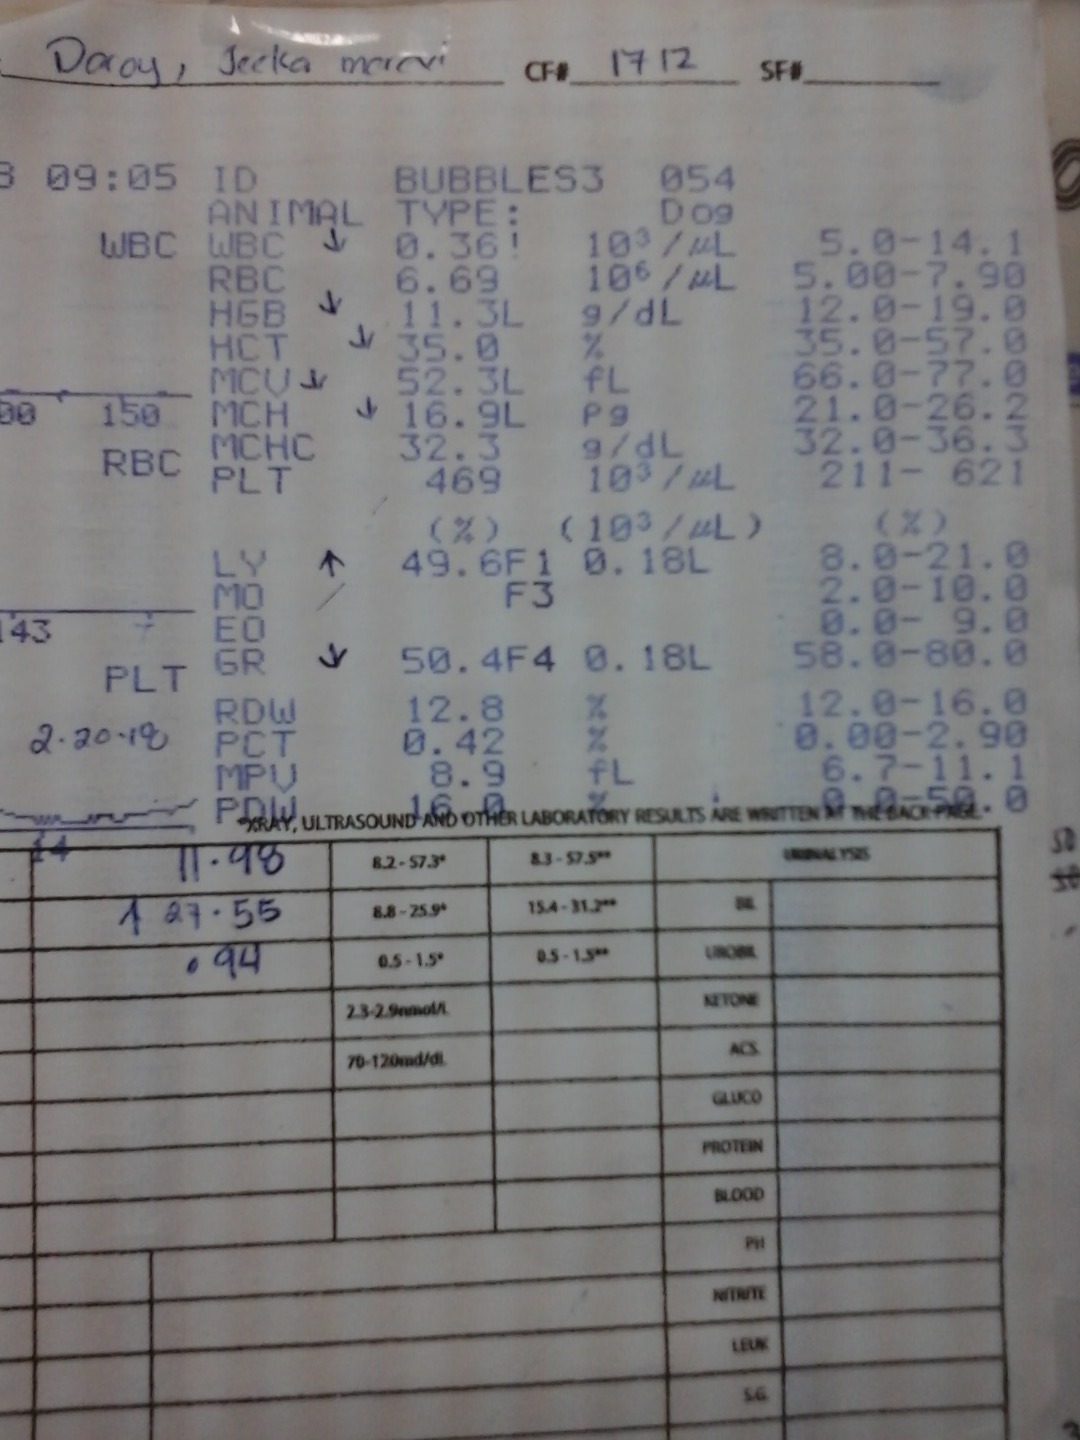 Daray, Jecka CF# 1712 SF#
09:05 ID BUBBLES3 054
ANIMAL TYPE: Dog
WBC WBC ↓ 0.36! 10³/µL 5.0-14.1
RBC 6.69 10⁶/µL 5.00-7.90
HGB ↓ 11.3L g/dL 12.0-19.0
HCT ↓ 35.0 % 35.0-57.0
MCV ↓ 52.3L fL 66.0-77.0
00 150 MCH ↓ 16.9L pg 21.0-26.2
RBC MCHC 32.3 g/dL 32.0-36.3
PLT 469 10³/µL 211- 621
(%) (10³/µL) (%)
LY ↑ 49.6F1 0.18L 8.0-21.0
MO F3 2.0-10.0
143 EO 0.0- 9.0
PLT GR ↓ 50.4F4 0.18L 58.0-80.0
RDW 12.8 % 12.0-16.0
2·20·18 PCT 0.42 % 0.00-2.90
MPV 8.9 fL 6.7-11.1
PDW 16.0 % 0.0-50.0
*XRAY, ULTRASOUND AND OTHER LABORATORY RESULTS ARE WRITTEN AT THE BACK PAGE.
14 11.98 8.2 - 57.3* 8.3 - 57.5** URINALYSIS
↑ 27.55 8.8 - 25.9* 15.4 - 31.2** BIL
.94 0.5 - 1.5* 0.5 - 1.5** UROBIL
2.3-2.9nmol/L KETONE
70-120md/dl. ACS.
GLUCO
PROTEIN
BLOOD
PH
NITRITE
LEUK
S.G.